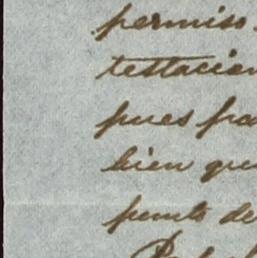 permiso
testacion
pues fra
bien que
punto de